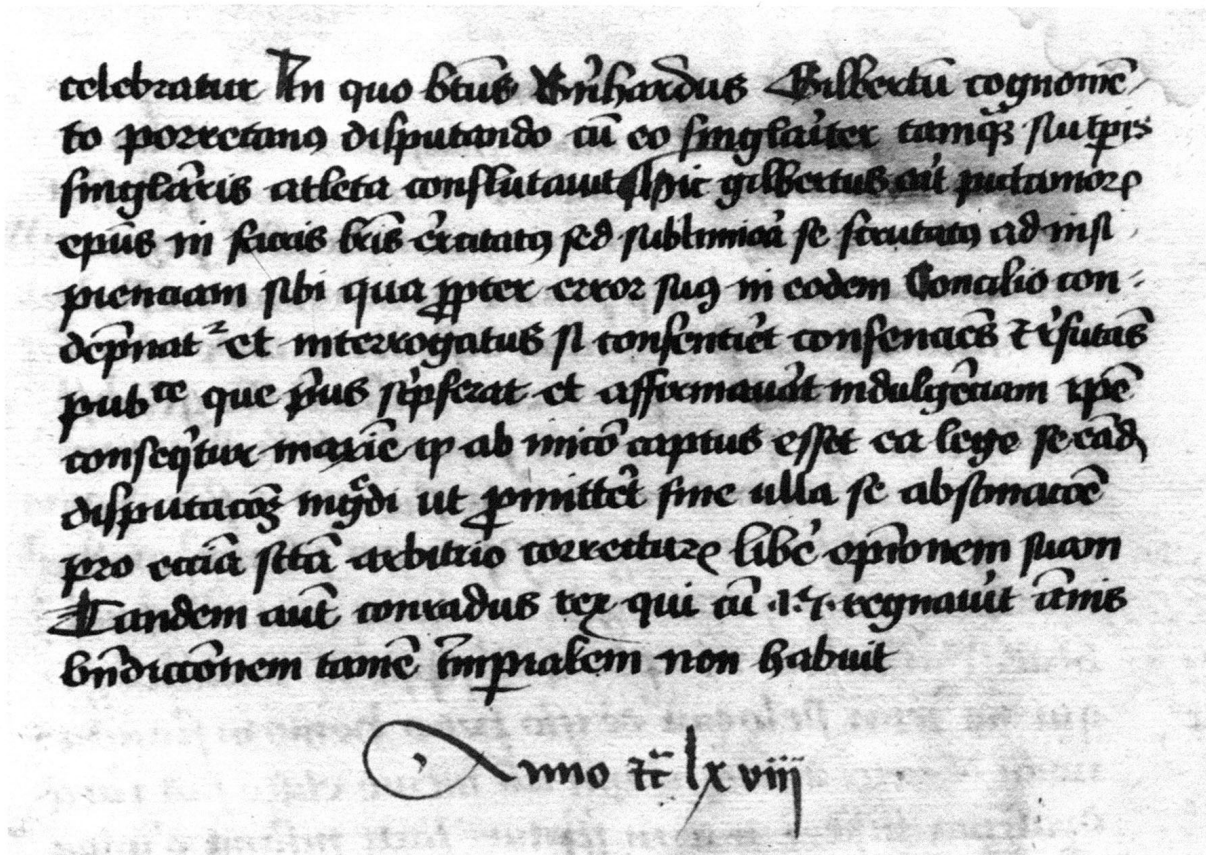 celebratur In quo btūs Bnhardus Gilbertū cognomē
to porretanꝰ disputando cū eo singlarit̉ tamqꝫ
singlāris atleta confutauit Hic gilbertus aut̄ pictamorꝝ
epūs in sacris lrīs exercitatꝰ sed sublimiora se scrutatꝰ ad insi
pienciam sibi qua ꝓpter error suꝰ in eodem Concilio con
dēpnat᷑ et interrogatus si consentiret consenciēs et refutās
pubᶜᵉ que pͥus scͥpserat et affirmauāt indulgēciam ipē
conseqͥtur maxīe qꝫ ab inicō captus esset ea lege se eād
disputacōꝫ ingͣdi ut ꝓmitteret sine ulla se obstinacōe
pro eccīa sctā arbitrio correcturꝝ libē opīonem suam
Tandem aut̄ conradus rex qui cū .15. regnauit ānis
bn̄diccōnem tamē īmꝑialem non habuit
Anno etc̄ lxviij